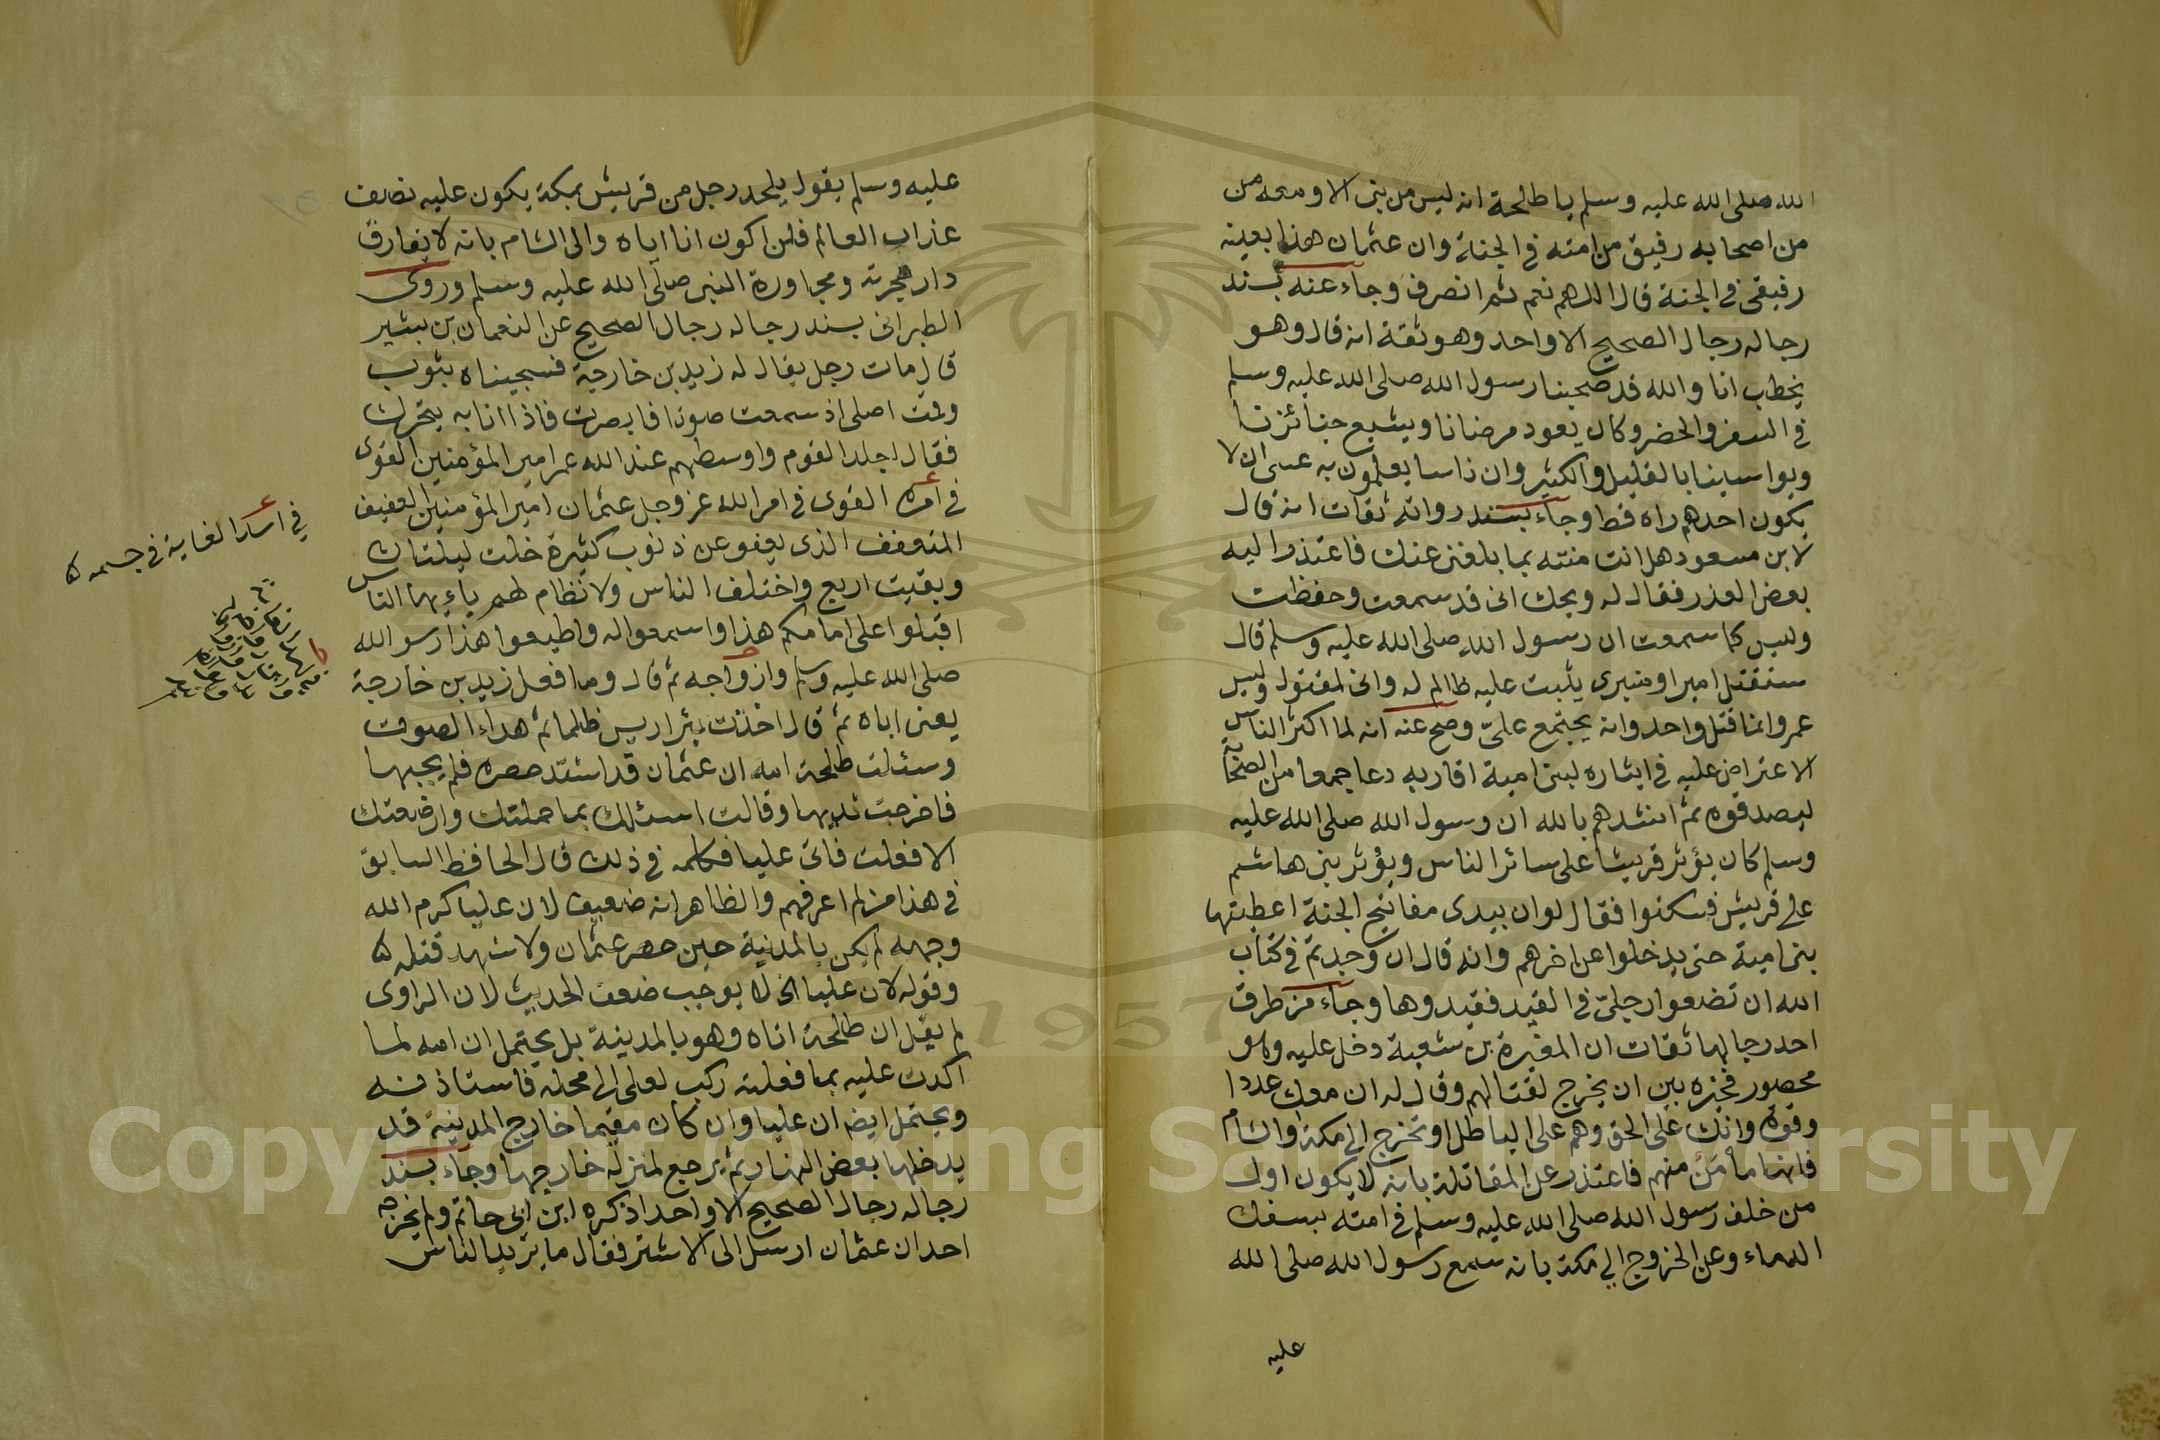 الله صلى الله عليه وسلم يا طلحة انه ليس من نبى الا ومعه من
من اصحابه رفيق من امته فى الجنة وان عثمان هذا بعينه
رفيقى فى الجنة قال اللهم نعم ثم انصرف وجاء عنه بسند
رجاله رجال الصحيح الا واحد وهو ثقة انه قال وهو
يخطب انا والله قد صحبنا رسول الله صلى الله عليه وسلم
فى السفر والحضر وكان يعود مرضانا ويشيع جنائزنا
ويواسينا بالقليل والكثير وان ناسا يعلمون به عسى ان لا
يكون احدهم راه قط وجاء بسند رواته ثقات انه قال
لابن مسعود هل انت منته بما بلغنى عنك فاعتذر اليه
بعض العذر فقال له ويحك انى قد سمعت وحفظت
وليس كما سمعت ان رسول الله صلى الله عليه وسلم قال
سيقتل امير او منبرى يثبت عليه ظالم له وانى المقتول وليس
عمر وانما قتل واحد وانه يجتمع علىّ وصح عنه انه لما اكثر الناس
الاعتراض عليه فى ايثاره لبنى امية اقاربه دعا جمعا من الصحابة
ليصدقوه ثم انشدهم بالله ان رسول الله صلى الله عليه
وسلم كان يؤثر قريشا على سائر الناس ويؤثر بنى هاشم
على قريش فسكتوا فقال لو ان بيدى مفاتيح الجنة اعطيتها
بنى امية حتى يدخلوا عن اخرهم وانه قال ان وجدتم فى كتاب
الله ان تضعوا رجلىّ فى القيد فقيدوها وجاء من طرق
احد رجالها ثقات ان المغيرة بن شعبة دخل عليه وهو
محصور فخيره بين ان يخرج لقتالهم وقال له ان معك عددا
وقوة وانك على الحق وهم على الباطل او تخرج الى مكة والشام
فانها مأمن منهم فاعتذر عن المقاتلة بانه لا يكون اول
من خلف رسول الله صلى الله عليه وسلم فى امته بسفك
الدماء وعن الخروج الى مكة بانه سمع رسول الله صلى الله
عليه
عليه وسلم يقول يلحد رجل من قريش بمكة يكون عليه نصف
عذاب العالم فلن اكون انا اياه والى الشام بانه لا يفارق
دار هجرته ومجاورة النبى صلى الله عليه وسلم وروى
الطبرانى بسند رجاله رجال الصحيح عن النعمان بن بشير
قال مات رجل يقال له زيد بن خارجة فسجيناه بثوب
وقمت اصلى اذ سمعت صوتا فابصرت فاذا انا به يتحرك
فقال اجلد القوم واوسطهم عند الله عمر امير المؤمنين القوى
فى امره القوى فى امر الله عز وجل عثمان امير المؤمنين العفيف
المتعفف الذى يعفو عن ذنوب كثيرة خلت ليلتان
وبقيت اربع واختلف الناس ولا نظام لهم يا ايها الناس
اقبلوا على امامكم هذا واسمعوا له واطيعوا هذا رسول الله
صلى الله عليه وسلم وازواجه ثم قال وما فعل زيد بن خارجة
يعنى اباه ثم قال اخذت بئر اريس ظلما ثم هداء الصوت
وسئلت طلحة امه ان عثمان قد اشتد حصره فلم يجبها
فاخرجت ثدييها وقالت اسئلك بما حملتك وارضعتك
الا فعلت فاتى عليا فكلمه فى ذلك قال الحافظ السابق
فى هذا من لم اعرفهم والظاهر انه ضعيف لان عليا كرم الله
وجهه لم يكن بالمدينة حين حصر عثمان ولا شهد قتله ه
وقوله لان عليا الخ لا يوجب ضعف الحديث لان الراوى
لم يقل ان طلحة اتاه وهو بالمدينة بل يحتمل ان امه لما
اكدت عليه بما فعلته ركب لعلى الى محله فاستاذنه
ويحتمل ايضا ان عليا وان كان مقيما خارج المدينة قد
يدخلها بعض النهار ثم يرجع لمنزله خارجها وجاء بسند
رجاله رجال الصحيح الا واحدا ذكره ابن ابى حاتم ولم يجرحه
احد ان عثمان ارسل الى الاشتر فقال ما يريد الناس
فى اسد الغابة فى جسمه ه
Copyright © King Saud University
1957